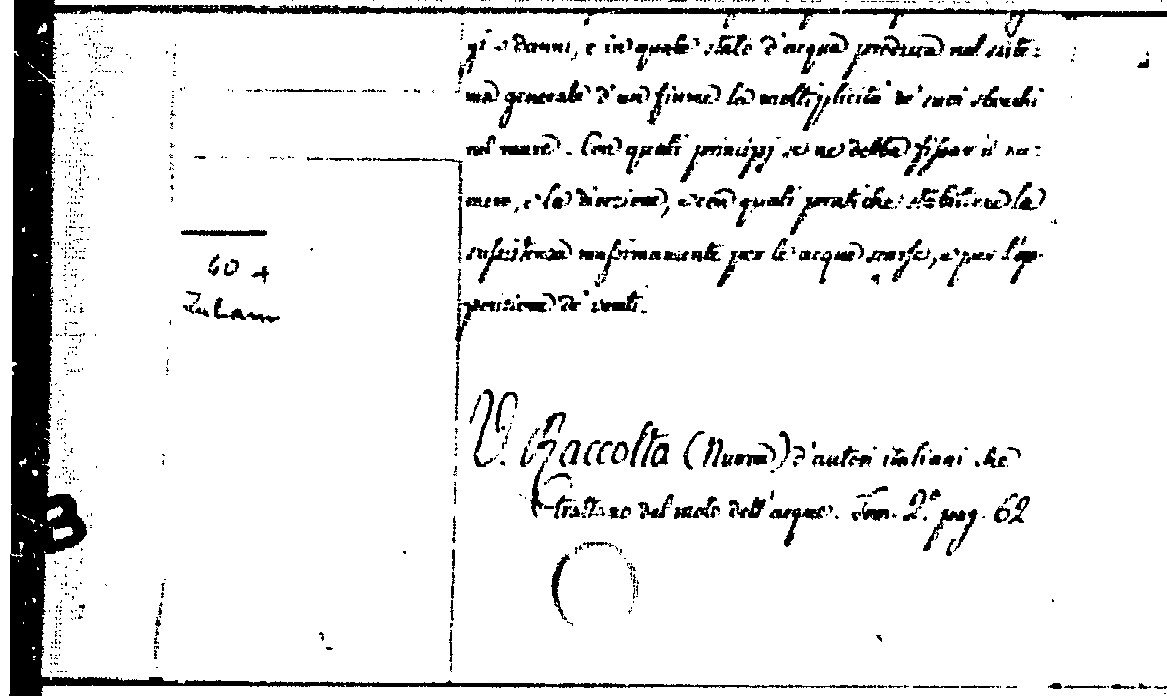 gj e danni, e in quale stato d'acqua produca nel siste:
ma generale d'un fiume la moltiplicità de' suoi sbocchi
nel mare. Con quali principj se ne debba fissar il nu:
mero, e la direzione, e con quali pratiche stabilirne la
sussistenza massimamente per le acque scarse, e per l'op:
posizione de' venti.
60 +
Zulian
V. Raccolta (Nuova) d'autori italiani che
trattano del moto dell'acque. Tom. 2.° pag. 62
B